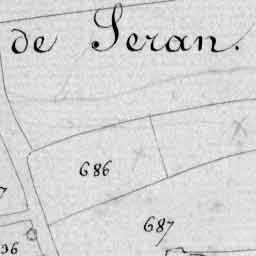 de Seran.
686
687
7
36